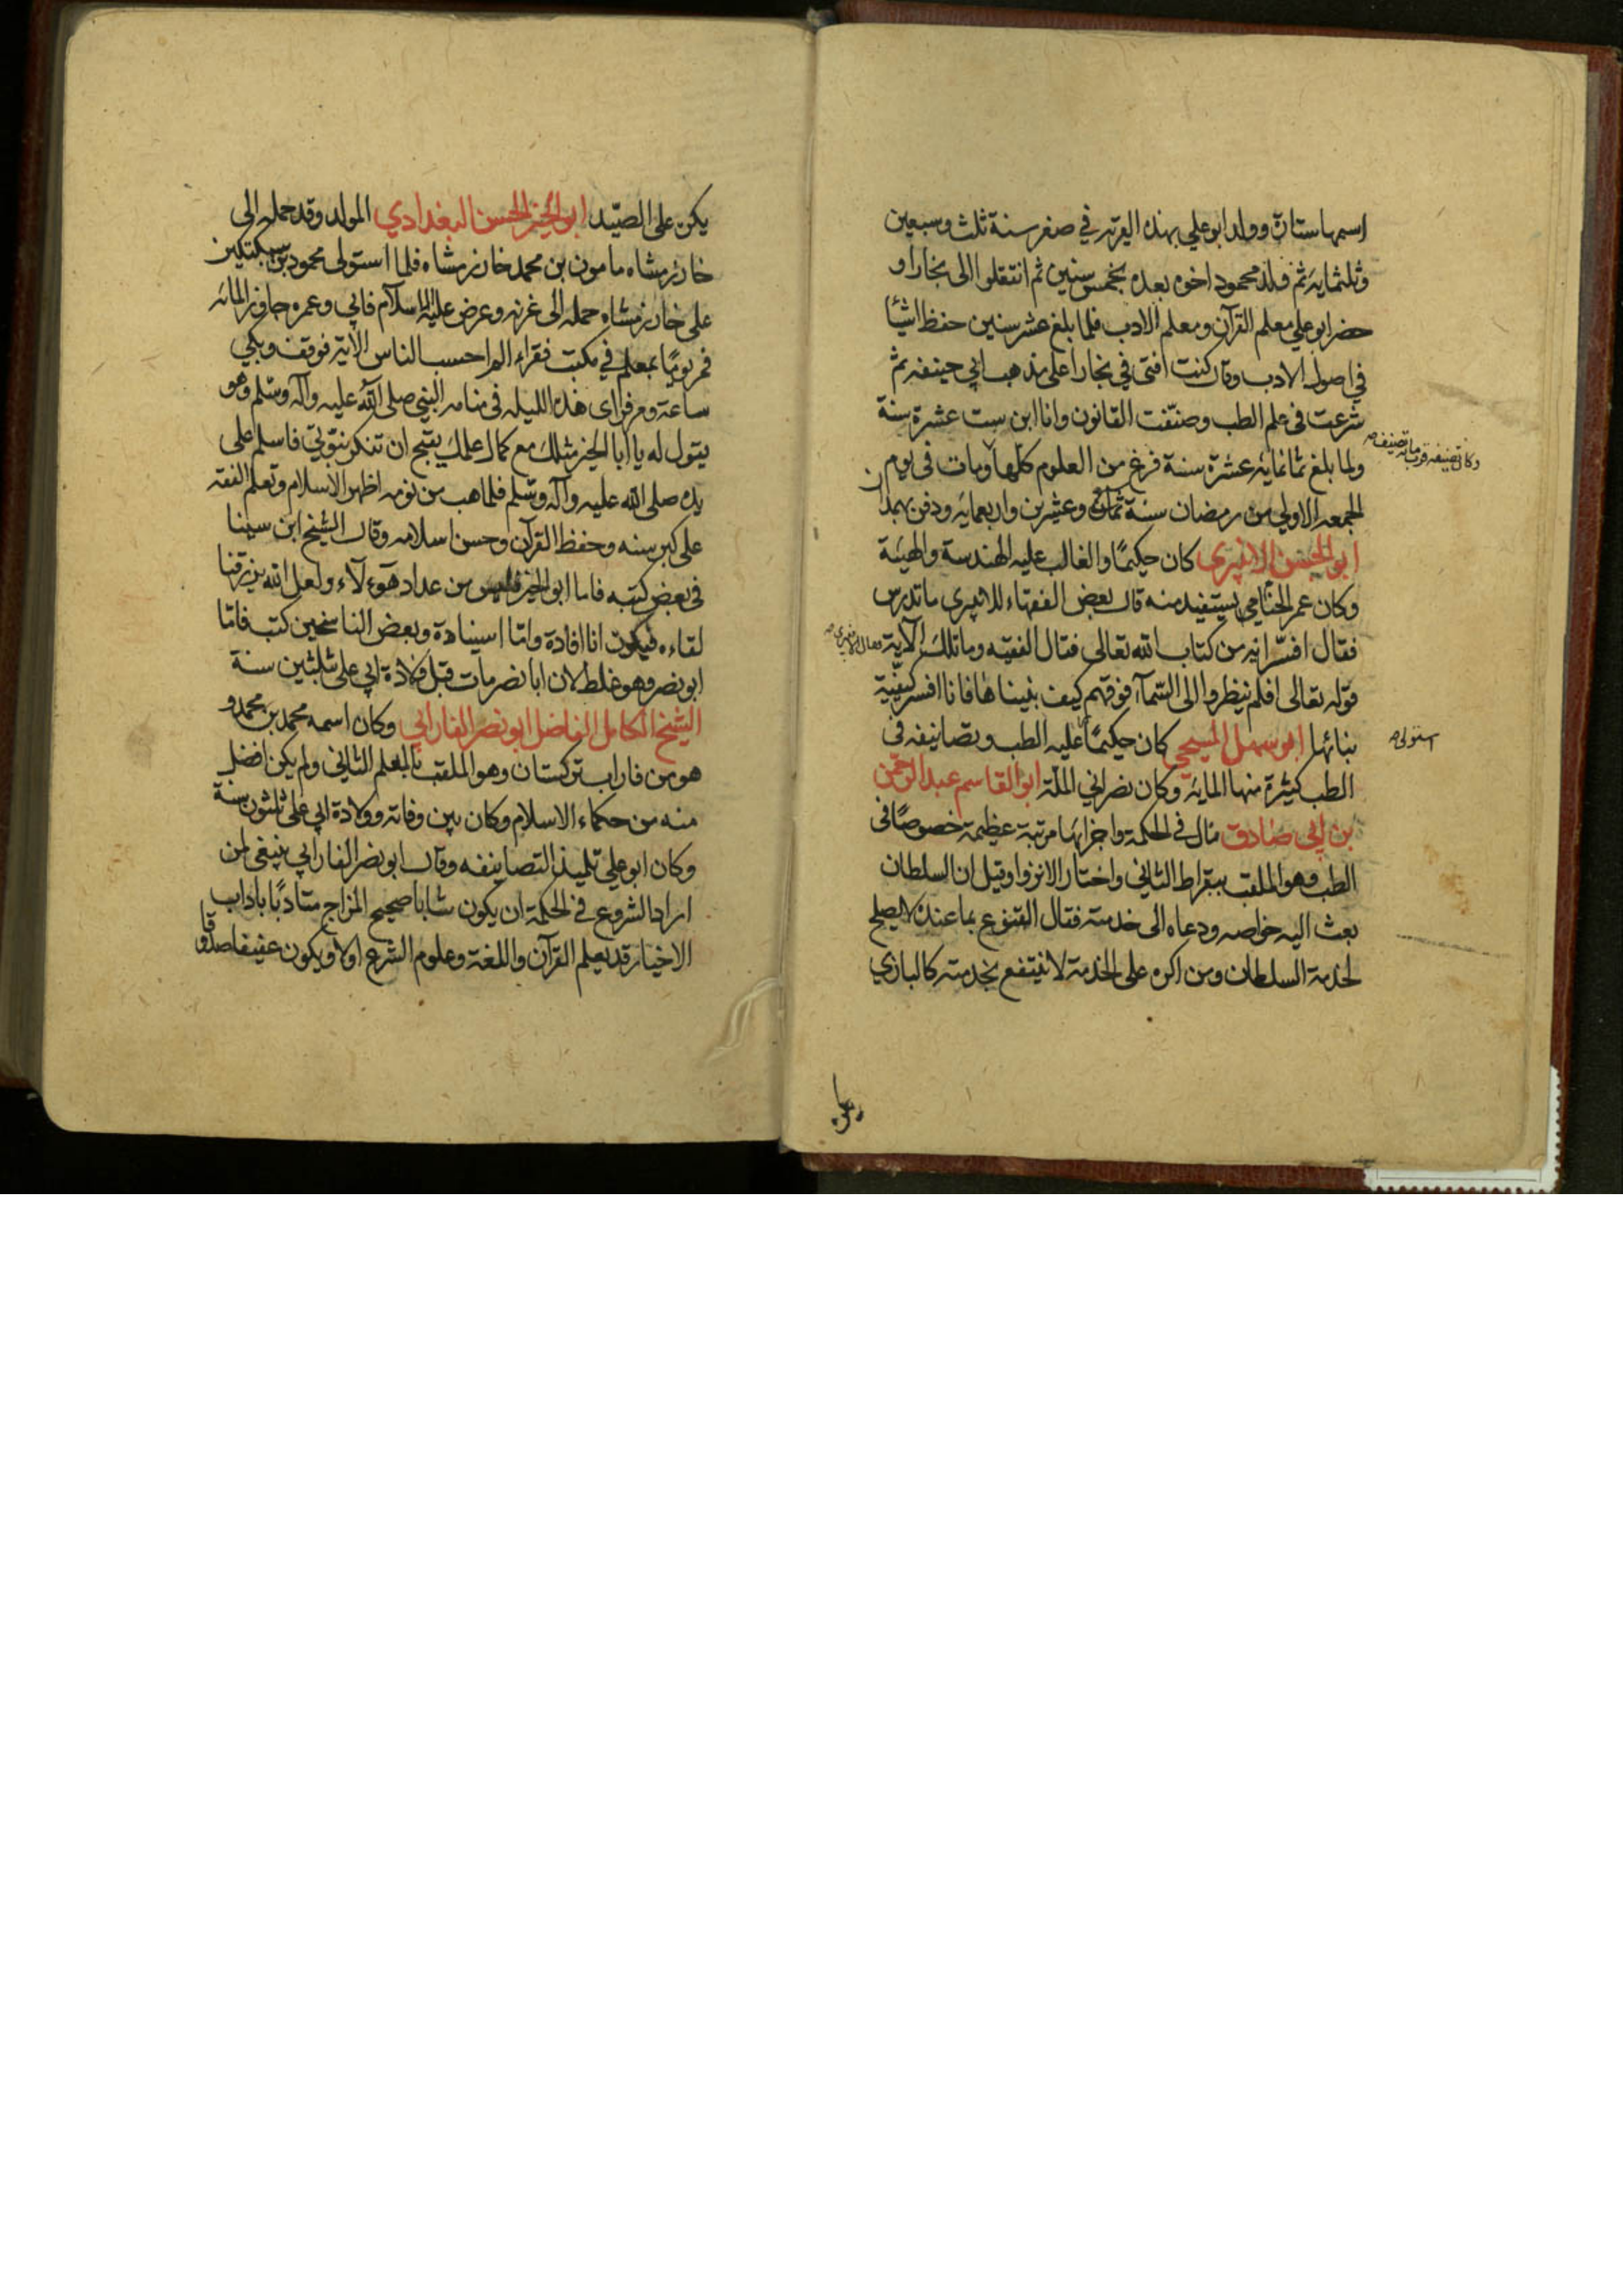 اسمها ستارة وولد ابو علي بهذه القرية في صفر سنة ثلث وسبعين
وثلثماية ثم ولد محمود اخوه بعده بخمس سنين ثم انتقلوا الى بخارا و
حضر ابو علي معلم القرآن ومعلم الادب فلما بلغ عشر سنين حفظ اشيأ
في اصول الادب وقال كنت افتى في بخارا على مذهب ابي حنيفه ثم
شرعت فى علم الطب وصنّفت القانون وانا ابن ست عشرة سنة
ولما بلغ ثمانية عشرة سنة فرغ من العلوم كلها ومات فى يوم
وكان تصنيفه قرب مأة تصنيف
الجمعه الاولى من رمضان سنة ثمان وعشرين واربعماية ودفن بهمدان
ابو الحسن الانبرى كان حكيمًا والغالب عليه الهندسة والهيئة
وكان عمر الخيامي يستفيد منه قال بعض الفقهاء للانبري ما تدرس
فقال افسّر اية من كتاب الله تعالى فقال الفقيه وما تلك الآية فقال الانبري
قوله تعالى افلم ينظروا الى السّمآء فوقهم كيف بنيناها فانا افسر كيفيّة
بنائها ابو سهل المسيحي كان حكيمًا عليه الطب وتصانيفه فى
استولى
الطب كثيرة منها الماية وكان نصراني الملّة ابو القاسم عبد الرحمن
بن ابي صادق نال في الحكمة واجزائها مرتبة عظيمة خصوصًا فى
الطب وهو الملقب ببقراط الثانى واختار الانزوا وقيل ان السلطان
بعث اليه خواصه ودعاه الى خدمته فقال القنوع بما عنده لا يصلح
لخدمة السلطان ومن اكره على الخدمة لا ينتفع بخدمته كالبازي
يكن على الصّيد ابو الخير الحسن البغدادي المولد وقد حمله الى
خارزمشاه مامون بن محمد خارزمشاه فلما استولى محمود بن سبكتكين
على خارزمشاه حمله الى غزنه وعرض عليه الاسلام فابى وعمره جاوز الماية
فمر يومًا بمعلم في مكتب فقراء الم احسب الناس الآية فوقف وبكي
ساعة ومر فراى هذه الليله فى منامه النبي صلى الله عليه وآله وسلم وهو
يقول له يا ابا الخير مثلك مع كمال علمك يقبح ان تنكر نبوتي فاسلم على
يده صلى الله عليه وآله وسلم فلما هب من نومه اظهر الاسلام وتعلم الفقه
على كبر سنه وحفظ القرآن وحسن اسلامه وقال الشيخ ابن سينا
فى بعض كتبه فاما ابو الخير فليس من عداد هؤلاء ولعل الله يرزقنا
لقاءه فيكون اما افادة واما استفادة وبعض الناسخين كتب فامّا
ابو نصر وهو غلط لان ابا نصر مات قبل ولادة ابي على ثلثين سنة
الشيخ الكامل الفاضل ابو نصر الفارابي وكان اسمه محمد بن محمد و
هو من فاراب تركستان وهو الملقب بالمعلم الثاني ولم يكن افضل
منه من حكماء الاسلام وكان بين وفاته وولادة ابي على ثلثون سنة
وكان ابو علي تلميذ التصانيفه وقال ابو نصر الفارابي ينبغى لمن
اراد الشروع في الحكمة ان يكون شابا صحيح المزاج متادبًا باداب
الاخيار قد يعلم القرآن واللغة وعلوم الشرع اولا ويكون عفيفا صدوقا
يكن